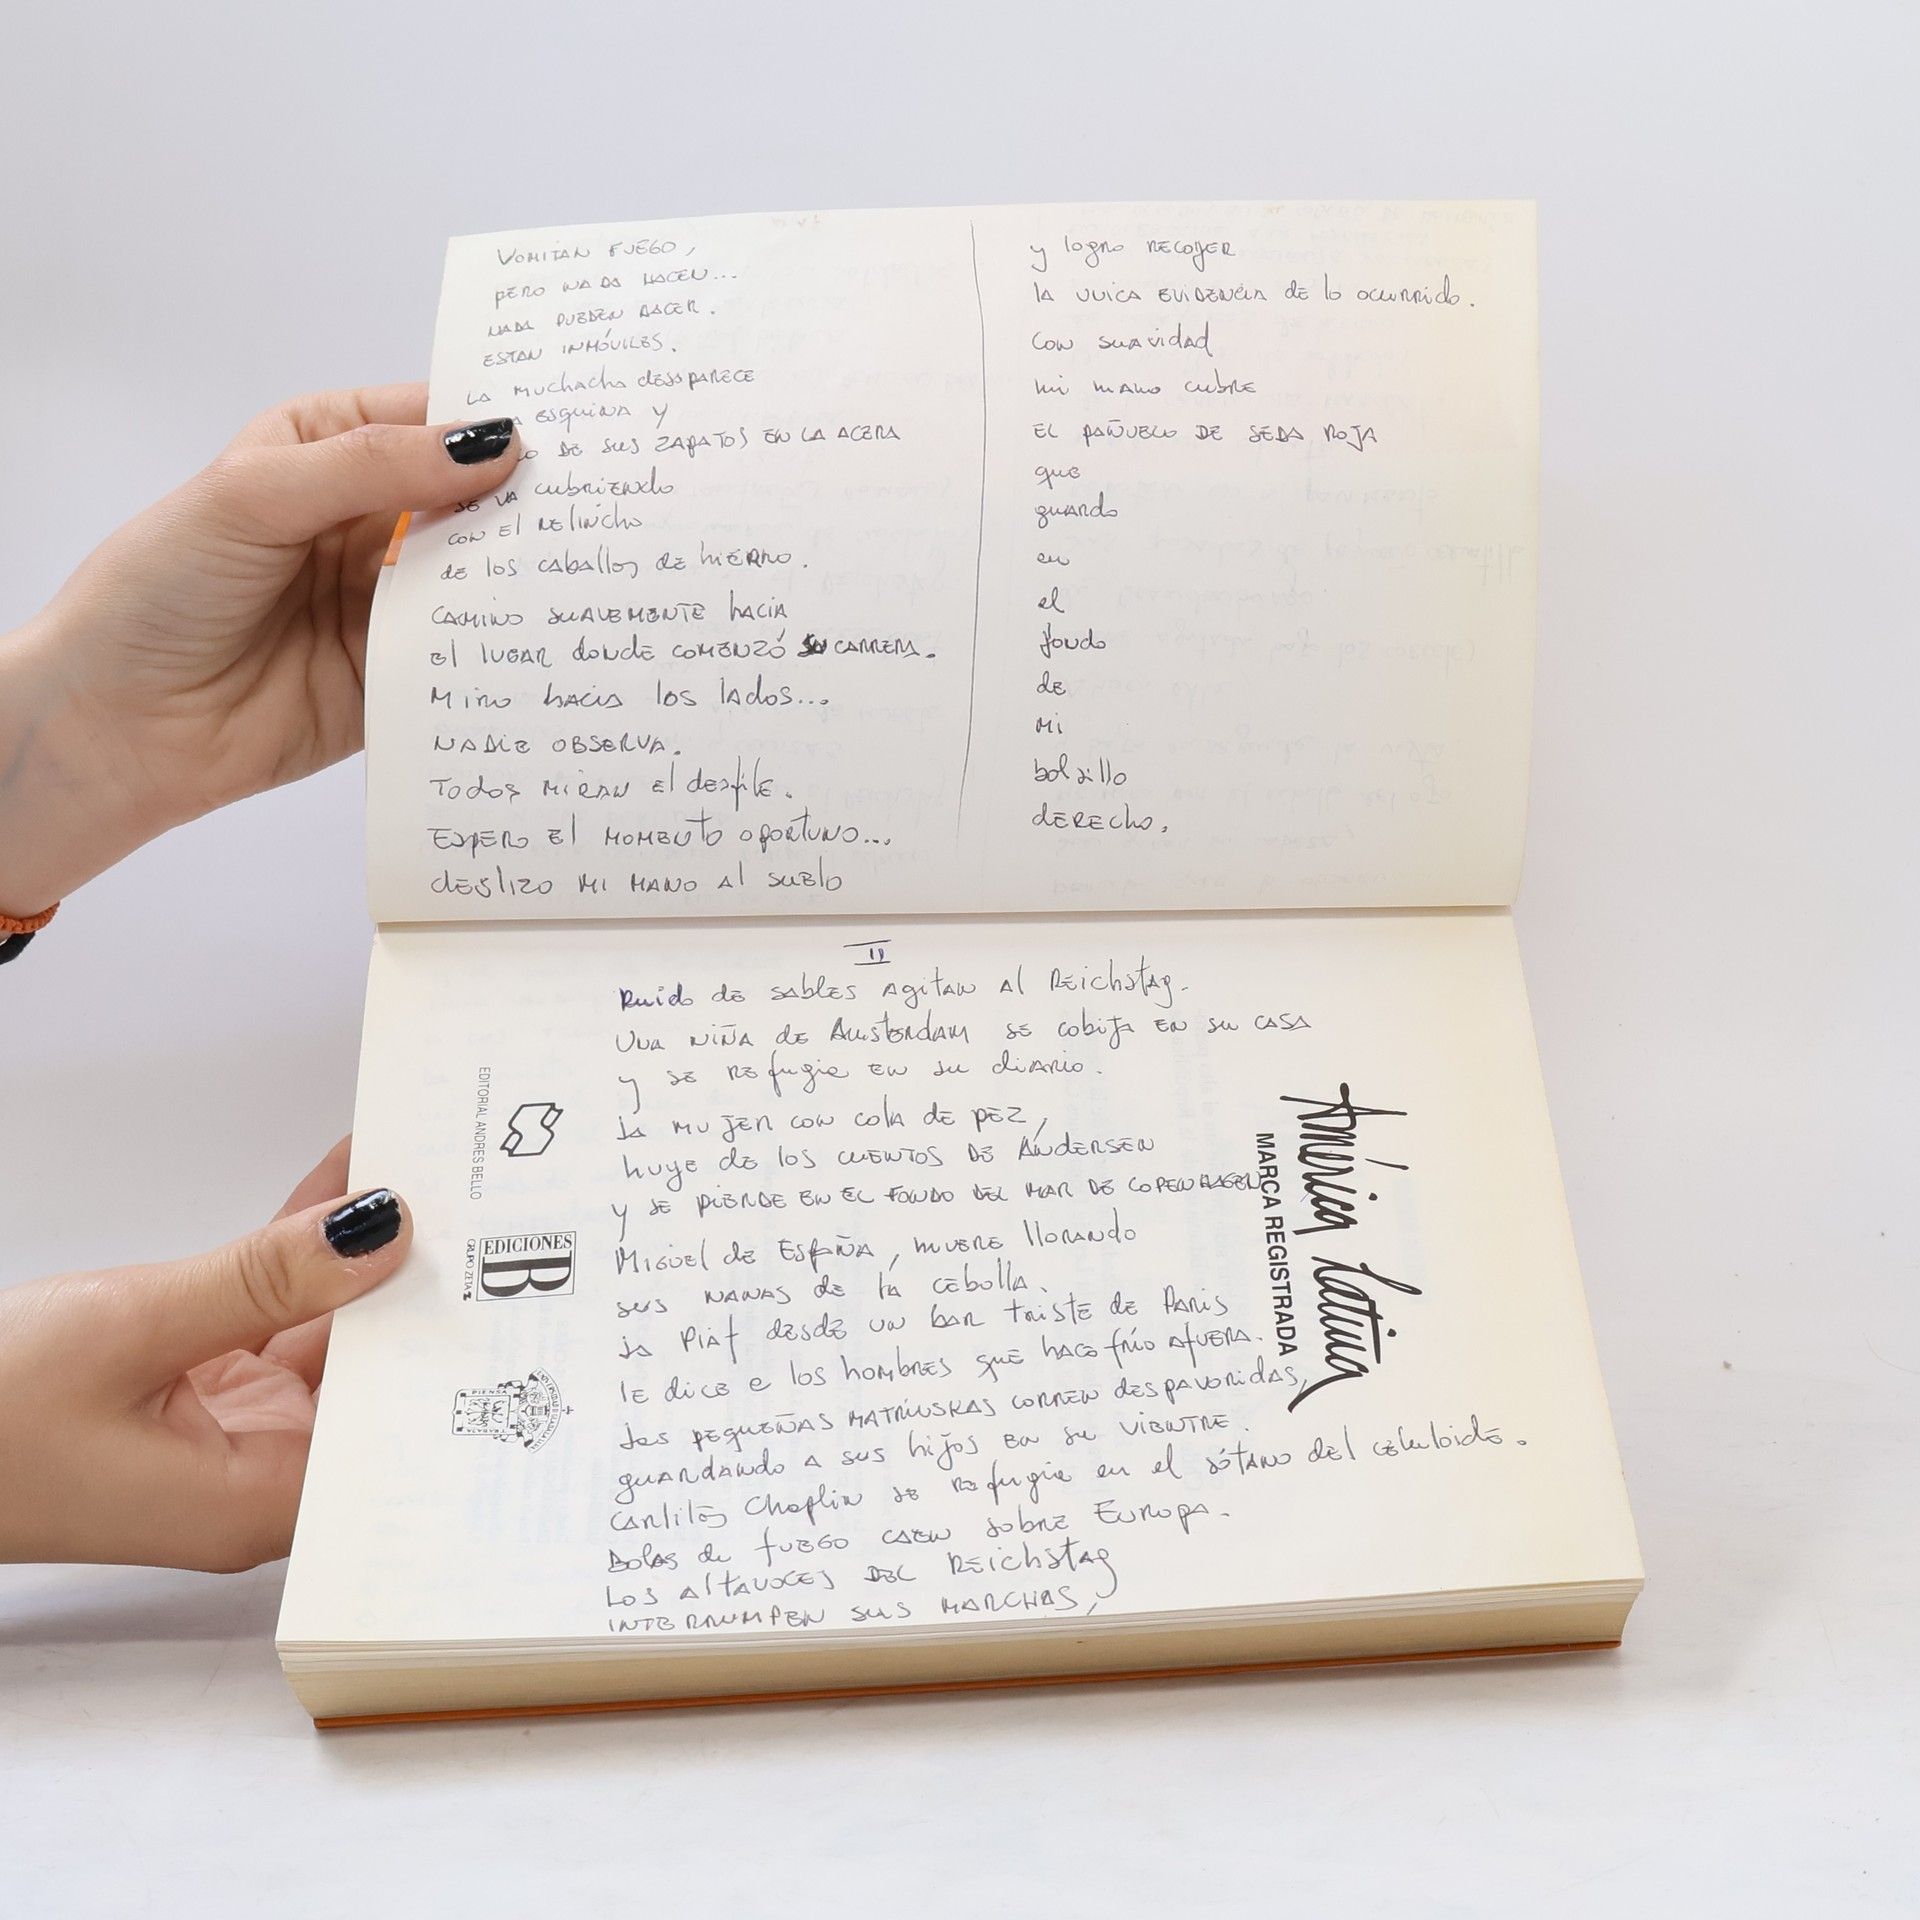 VOMITAN FUEGO,
PERO NADA HACEN...
NADA PUEDEN HACER.
ESTAN INMÓVILES.
LA MUCHACHA DESAPARECE
ESQUINA Y
DE SUS ZAPATOS EN LA ACERA
SE VA CUBRIENDO
CON EL RELINCHO
DE LOS CABALLOS DE HIERRO.
CAMINO SUAVEMENTE HACIA
EL LUGAR DONDE COMENZÓ SU CARRERA.
MIRO HACIA LOS LADOS...
NADIE OBSERVA.
TODOS MIRAN EL DESFILE.
ESPERO EL MOMENTO OPORTUNO...
DESLIZO MI MANO AL SUELO
y logro RECOJER
LA UNICA EVIDENCIA de lo ocurrido.
CON SUAVIDAD
mi mano cubre
EL PAÑUELO DE SEDA ROJA
que
guardo
en
el
fondo
de
Mi
bolsillo
derecho.
II
Ruido de sables agitan al Reichstag.
Una niña de Amsterdam se cobija en su casa
y se refugia en su diario.
La mujer con cola de pez,
huye de los cuentos de Andersen
y se pierde en el fondo del mar de Copenhagen
Miguel de España, muere llorando
sus nanas de la cebolla.
La Piaf desde un bar triste de Paris
le dice a los hombres que hace frío afuera.
Las pequeñas matriuskas corren despavoridas,
guardando a sus hijos en su vientre.
Carlitos Chaplin se refugia en el sótano del celuloide.
Bolas de fuego caen sobre Europa.
Los altavoces del Reichstag
interrumpen sus marchas,
América Latina
MARCA REGISTRADA
EDITORIAL ANDRES BELLO
EDICIONES
B
GRUPO ZETA
PIENSA
TRABAJA